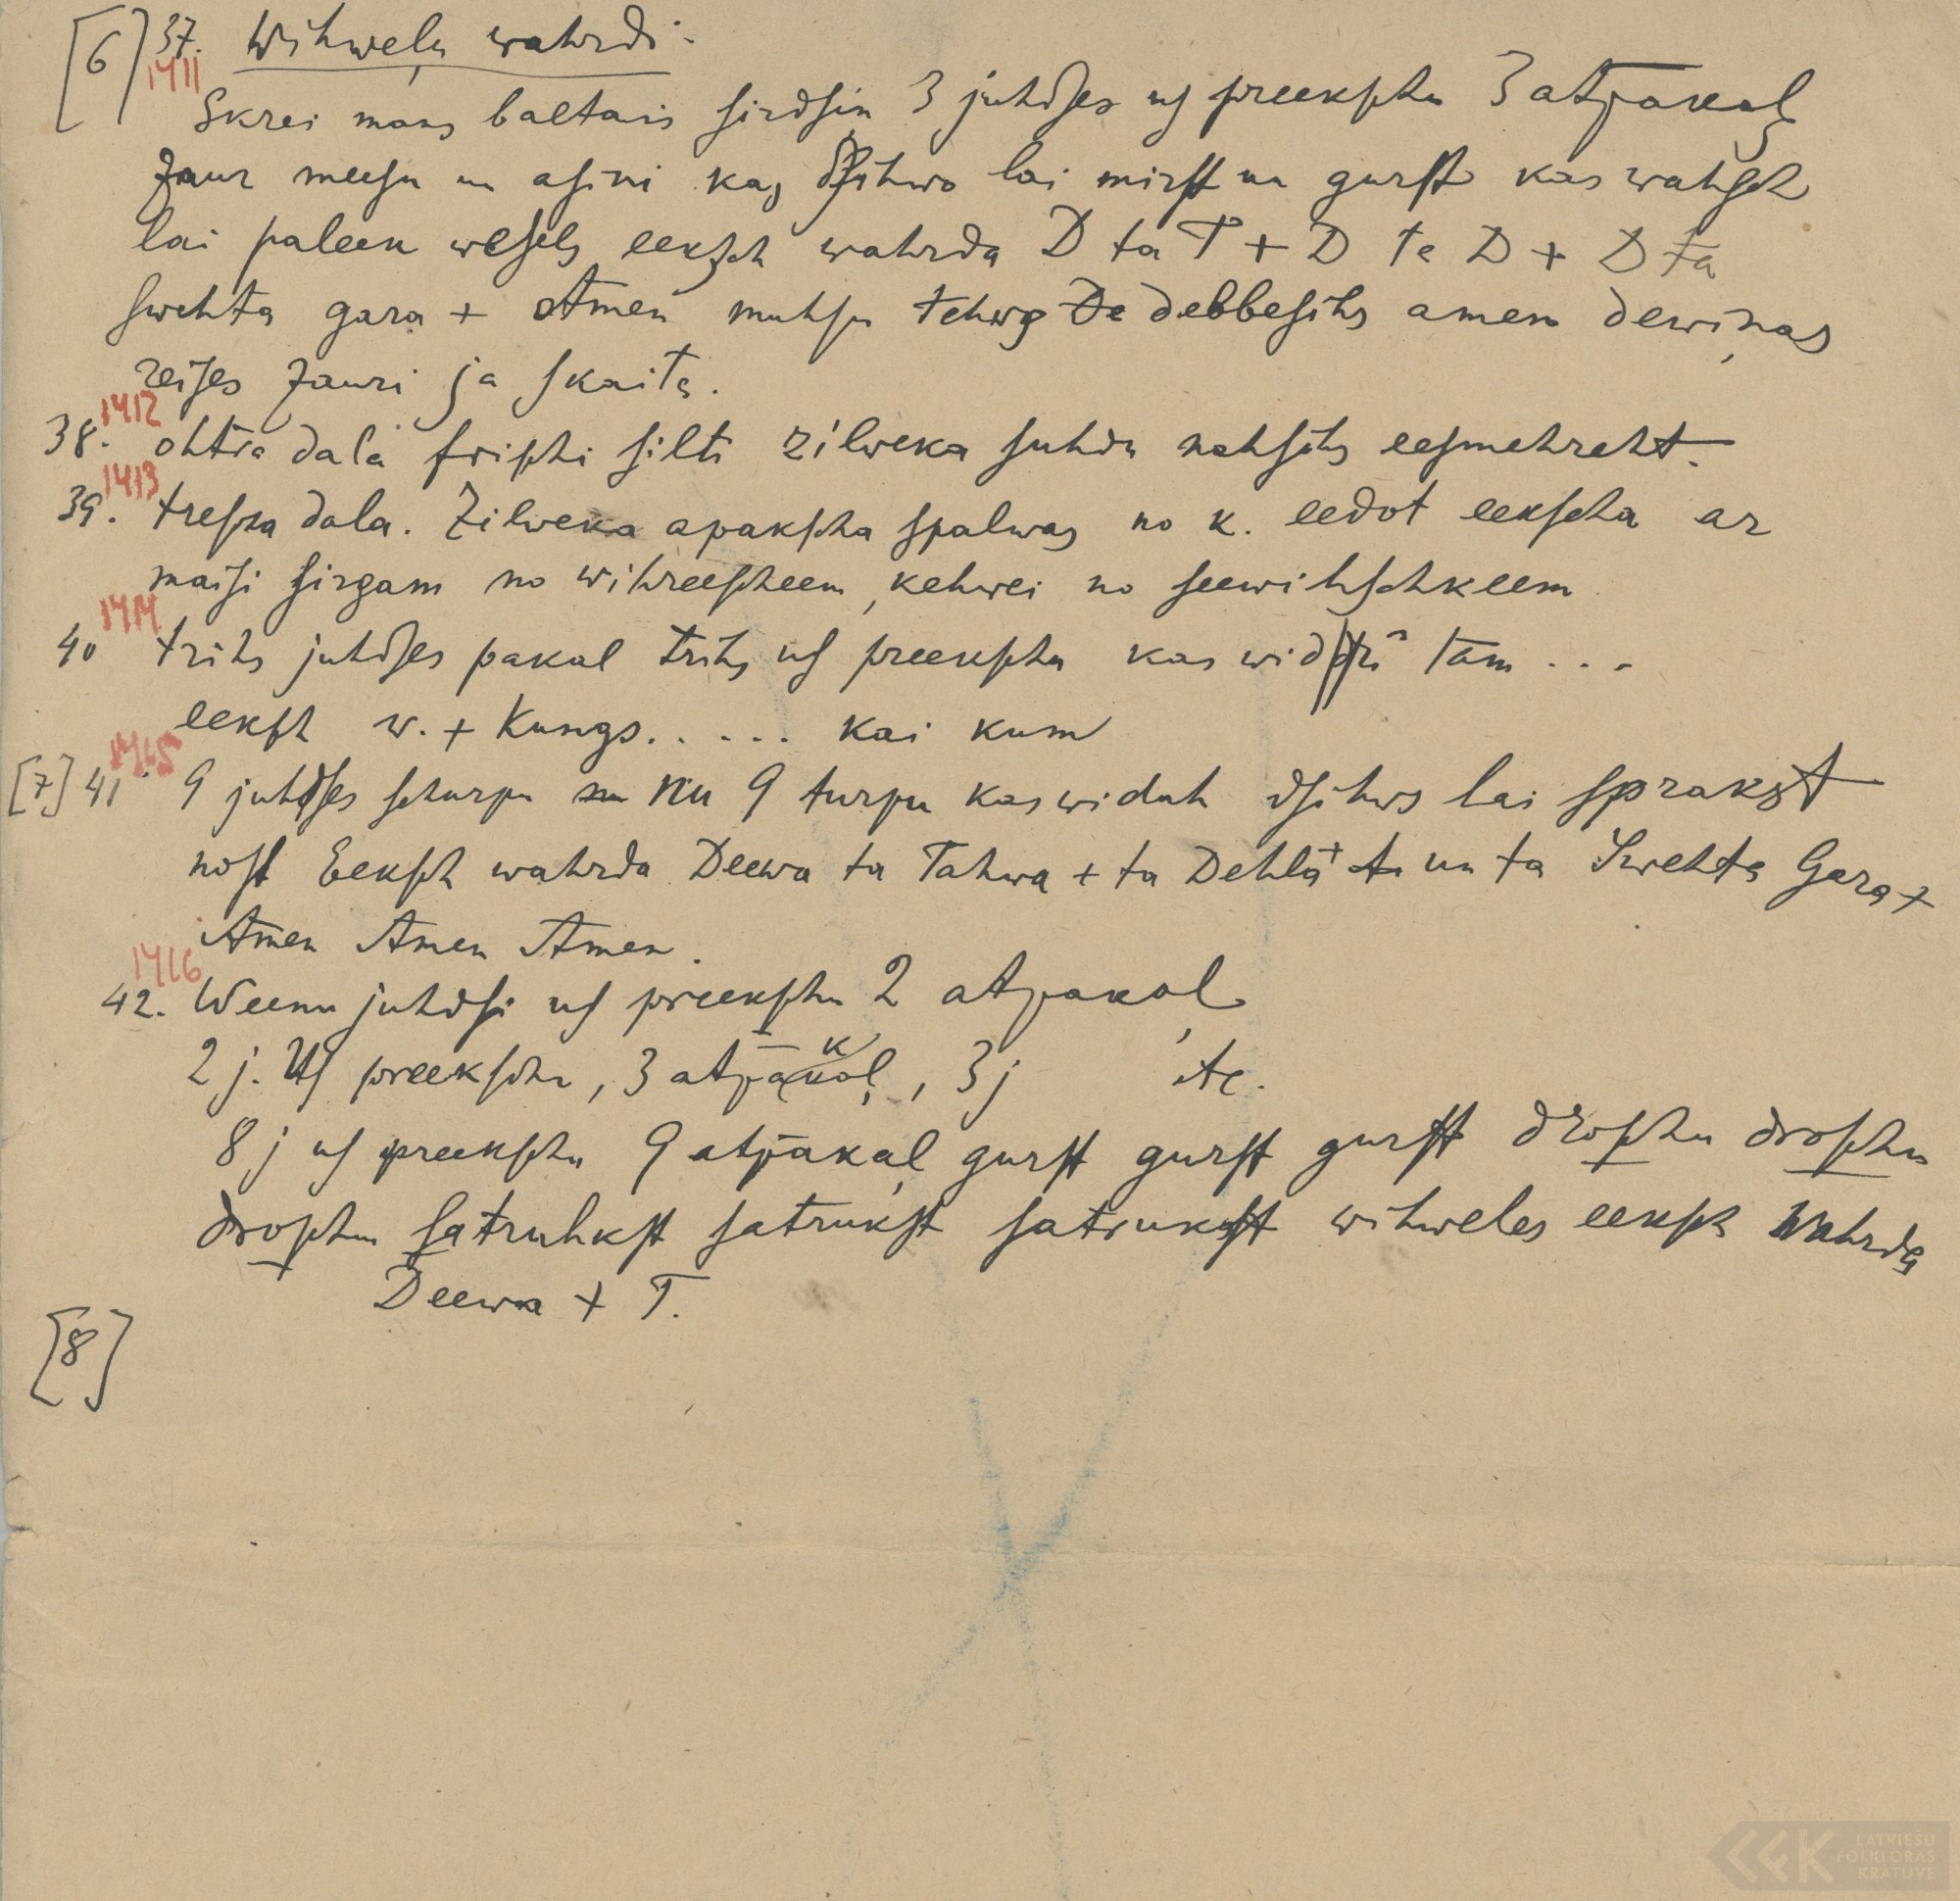 [6] 37. Wihweļu wahrdi.
1411
Skrei mans baltais sirdsin 3 juhdses us preekschu 3 atpakaļ
zaur meesu un asini kas dsihwo lai mirst un gurst kas wahjsch
lai paleek wesels eeksch wahrda D ta T + D ta D + D ta
swehta gara + Amen muhsu tehws debbesihs amen dewiņas
reises zauri ja skaita.
1412
38. ohtra dala frischi silti zilweka suhdu nahsihs eesmehreht.
1413
39. trescha dala. Zilweka apakscha spalwas no k. eedot eekscha ar
maisi sirgam no wihreescheem, kehwei no seewihschkeem
1414
40 trihs juhdses pakal trihs us preekschu kas widdū tam ...
eeksch w. + Kungs..... kai kum
1415
[7] 41 9 juhdses schurpu nu 9 turpu kas widuh dsihws lai sprakst
nost Eeksch wahrda Deewa ta Tahwa + ta Dehla + un ta Swehta Gara +
Amen Amen Amen.
1416
42. Weenu juhdsi us preekschu 2 atpakaļ
2 j. us preekschu, 3 atpakaļ, 3 j tc.
8 j us preekschu 9 atpakaļ gurst gurst gurst droschu droschu
droschu satruhkst satrukst satrukst wihweles eeksch wahrda
Deewa + T.
[8]
LATVIEŠU
FOLKLORAS
KRĀTUVE